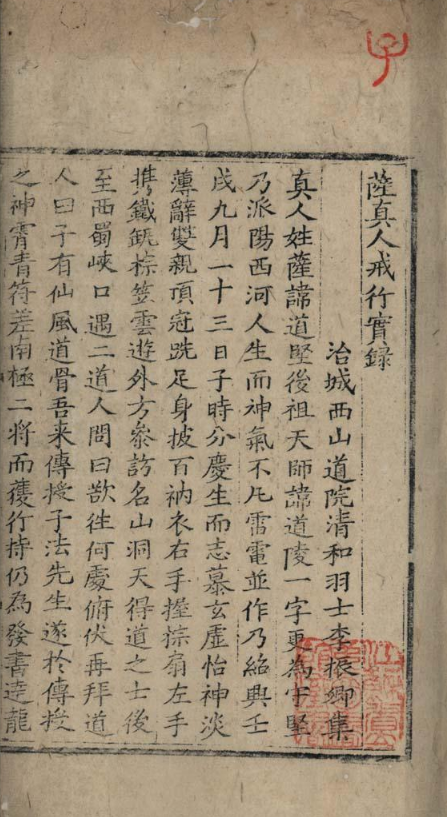 薩真人戒行實錄
冶城西山道院清和羽士李振卿集
真人姓薩諱道堅後祖天師諱道陵一字更為守堅
乃派陽西河人生而神氣不凡雷電並作乃紹興壬
戌九月一十三日子時分慶生而志慕玄虛怡神淡
薄辭雙親頂冠跣足身披百衲衣右手握棕扇左手
携鐵䤬棕笠雲遊外方叅訪名山洞天得道之士後
至西蜀峽口遇二道人問曰欲徃何處俯伏再拜道
人曰子有仙風道骨吾来傳授子法先生遂於傳授
之神霄青符差南極二将而護行持仍為發書達龍